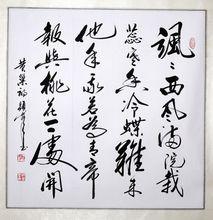 颯〻西风满院栽
蕊寒香冷蝶難来
他年我若為青帝
報與桃花一處開
黄巢詩